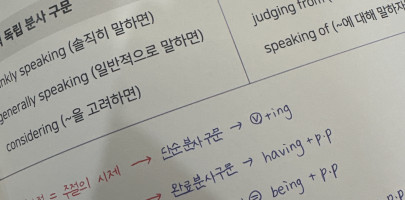 독립 분사 구문
speaking (솔직히 말하면)
generally speaking (일반적으로 말하면)
considering (~을 고려하면)
judging from
speaking of (~에 대해 말하자
= 주절의 시제 → 단순분사구문 → ⓥ+ing
→ 완료분사구문 → having+p.p
being + p.p
p.p